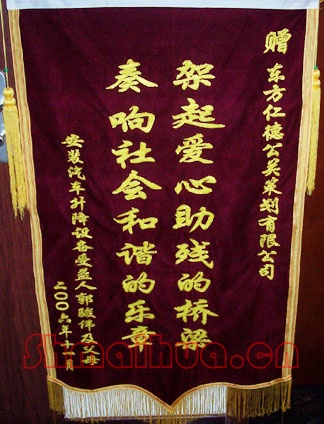 赠东方仁德公关策划有限公司
架起爱心助残的桥梁
奏响社会和谐的乐章
安装汽车升降设备受益人郭晓伟及父母
二00六年十一月
shmaihua.cn